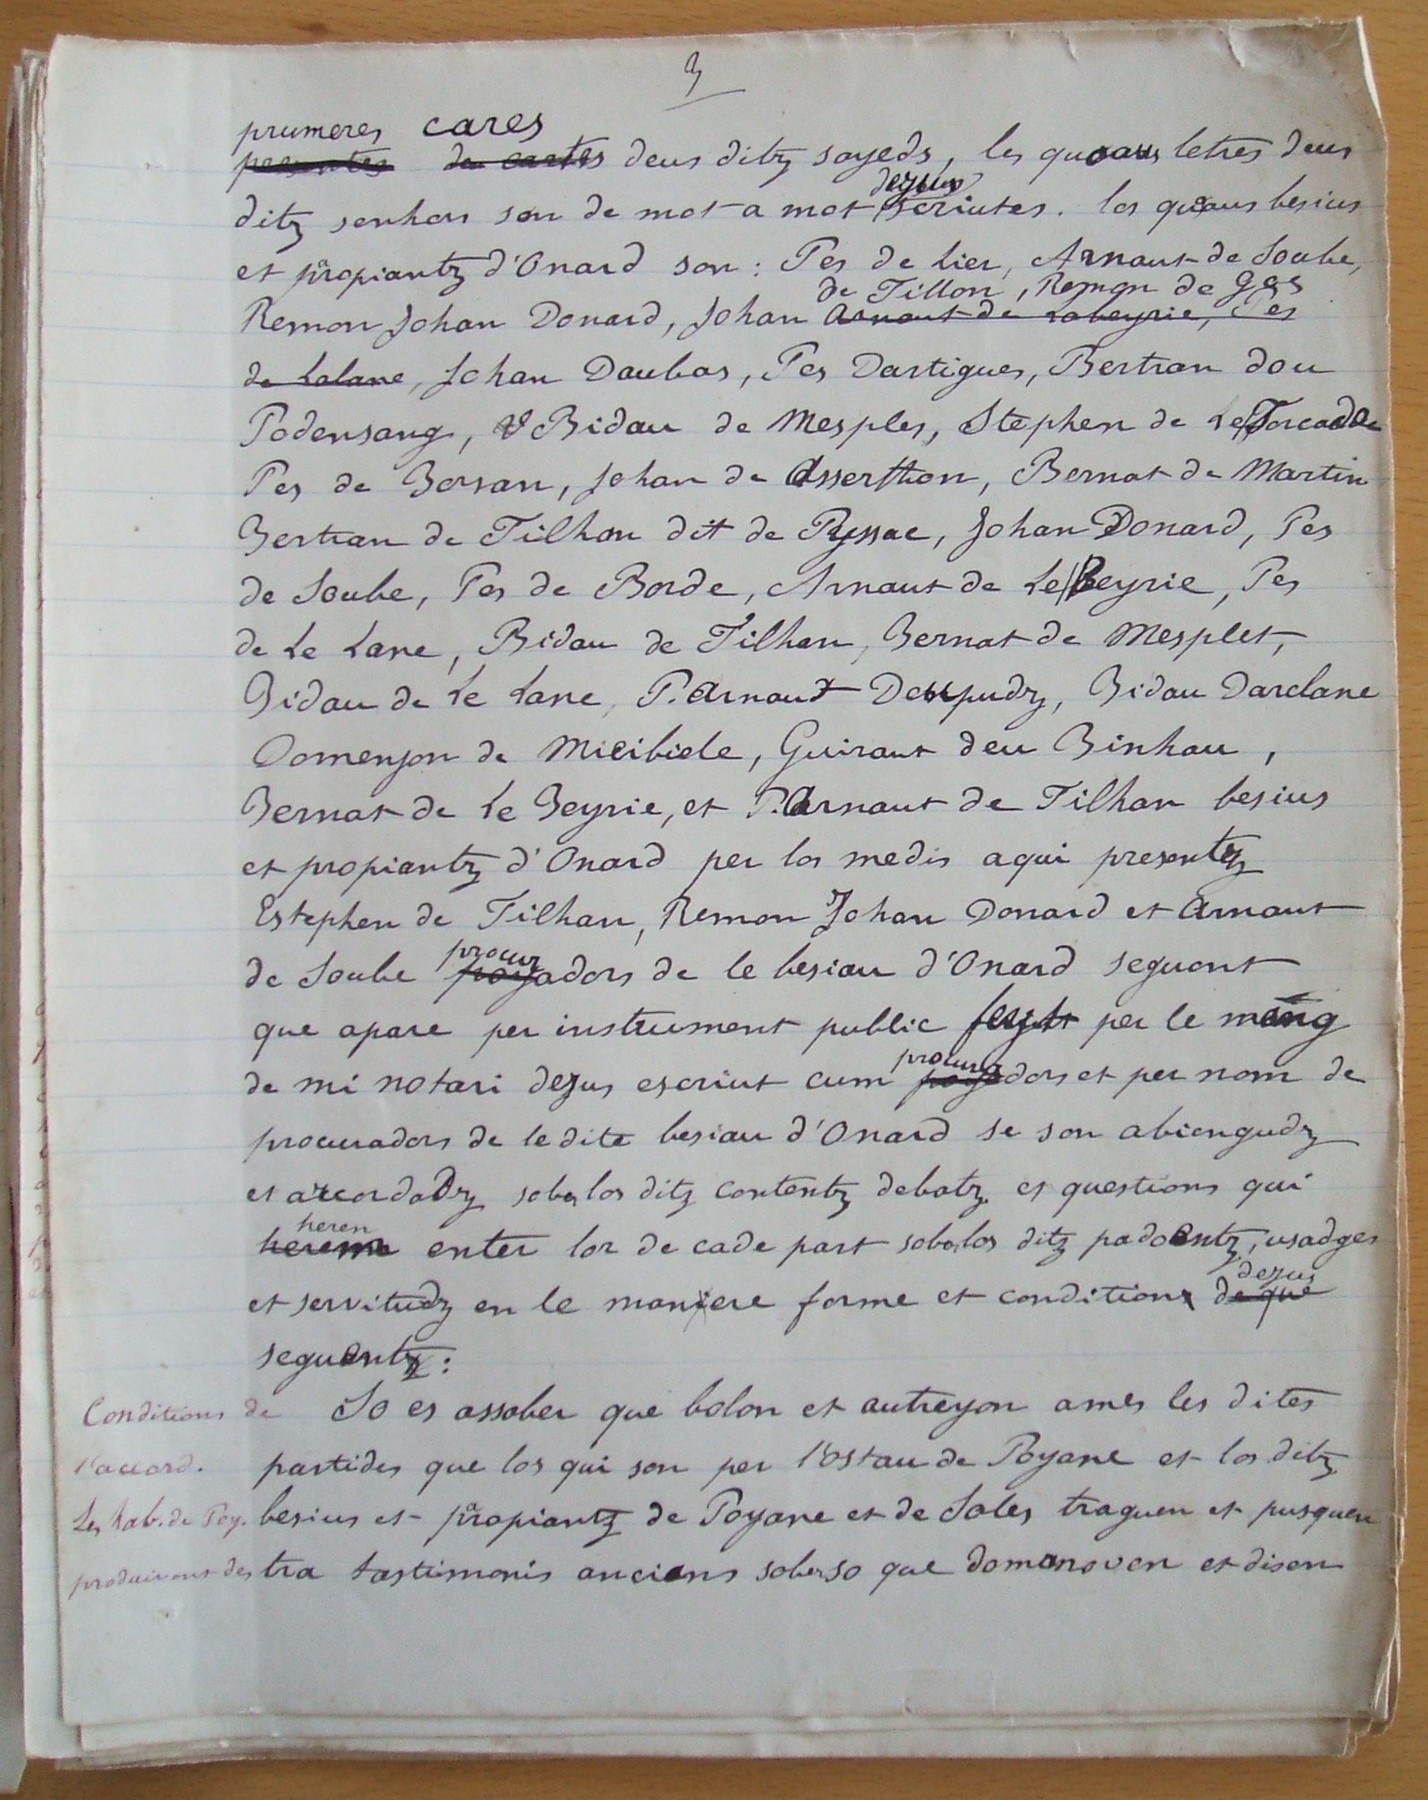 3
prumeres cares
presentes de cartes deus ditz sayeds, les quoaus letres deus
dejus
ditz senhors son de mot a mot scriutes. los quoaus besius
et propiantz d'Onard son : Pes de Lier, Arnaut de Soube,
de Tillon, Remon de Ges
Remon Johan Donard, Johan Arnaut de Labeyrie, Pes
de Lalane, Johan Daubas, Pes Dartigues, Bertran dou
Podensang, Bidau de Mesples, Stephen de Le Forcade
Pes de Borsan, Johan de Asserthon, Bernat de Martin
Bertran de Tilhon dit de Pyssac, Johan Donard, Pes
de Soube, Pes de Borde, Arnaut de Le Beyrie, Pes
de Le Lane, Bidau de Tilhan, Bernat de Mesplet,
Bidau de Le Lane, P. Arnaut Deupudz, Bidau Darclane
Domenjon de Micibiele, Guiraut deu Binhau,
Bernat de Le Beyrie, et P. Arnaut de Tilhan besius
et propiantz d'Onard per los medis aqui presentz
Estephen de Tilhan, Remon Johan Donard et Arnaut
procur
de Soube adors de le besiau d'Onard seguont
que apare per instrument public feyt per le mang
procur
de mi notari dejus escriut cum adors et per nom de
procuradors de ledite besiau d'Onard se son abiengudz
et accordadz sober los ditz contentz debatz et questions qui
heren
enter lor de cade part sober los ditz padoentz, usadges
dejus
et servitudz en le maniere forme et condition de que
seguentz :
Conditions de So es assaber que bolon et autreyon ames les dites
l'accord. partides que los qui son per l'ostau de Poyane et los ditz
Les hab. de Poy. besius et propiantz de Poyane et de Soles traguen et pusquen
produiront des tra tastimonis ancians sober so que domanoven et disen